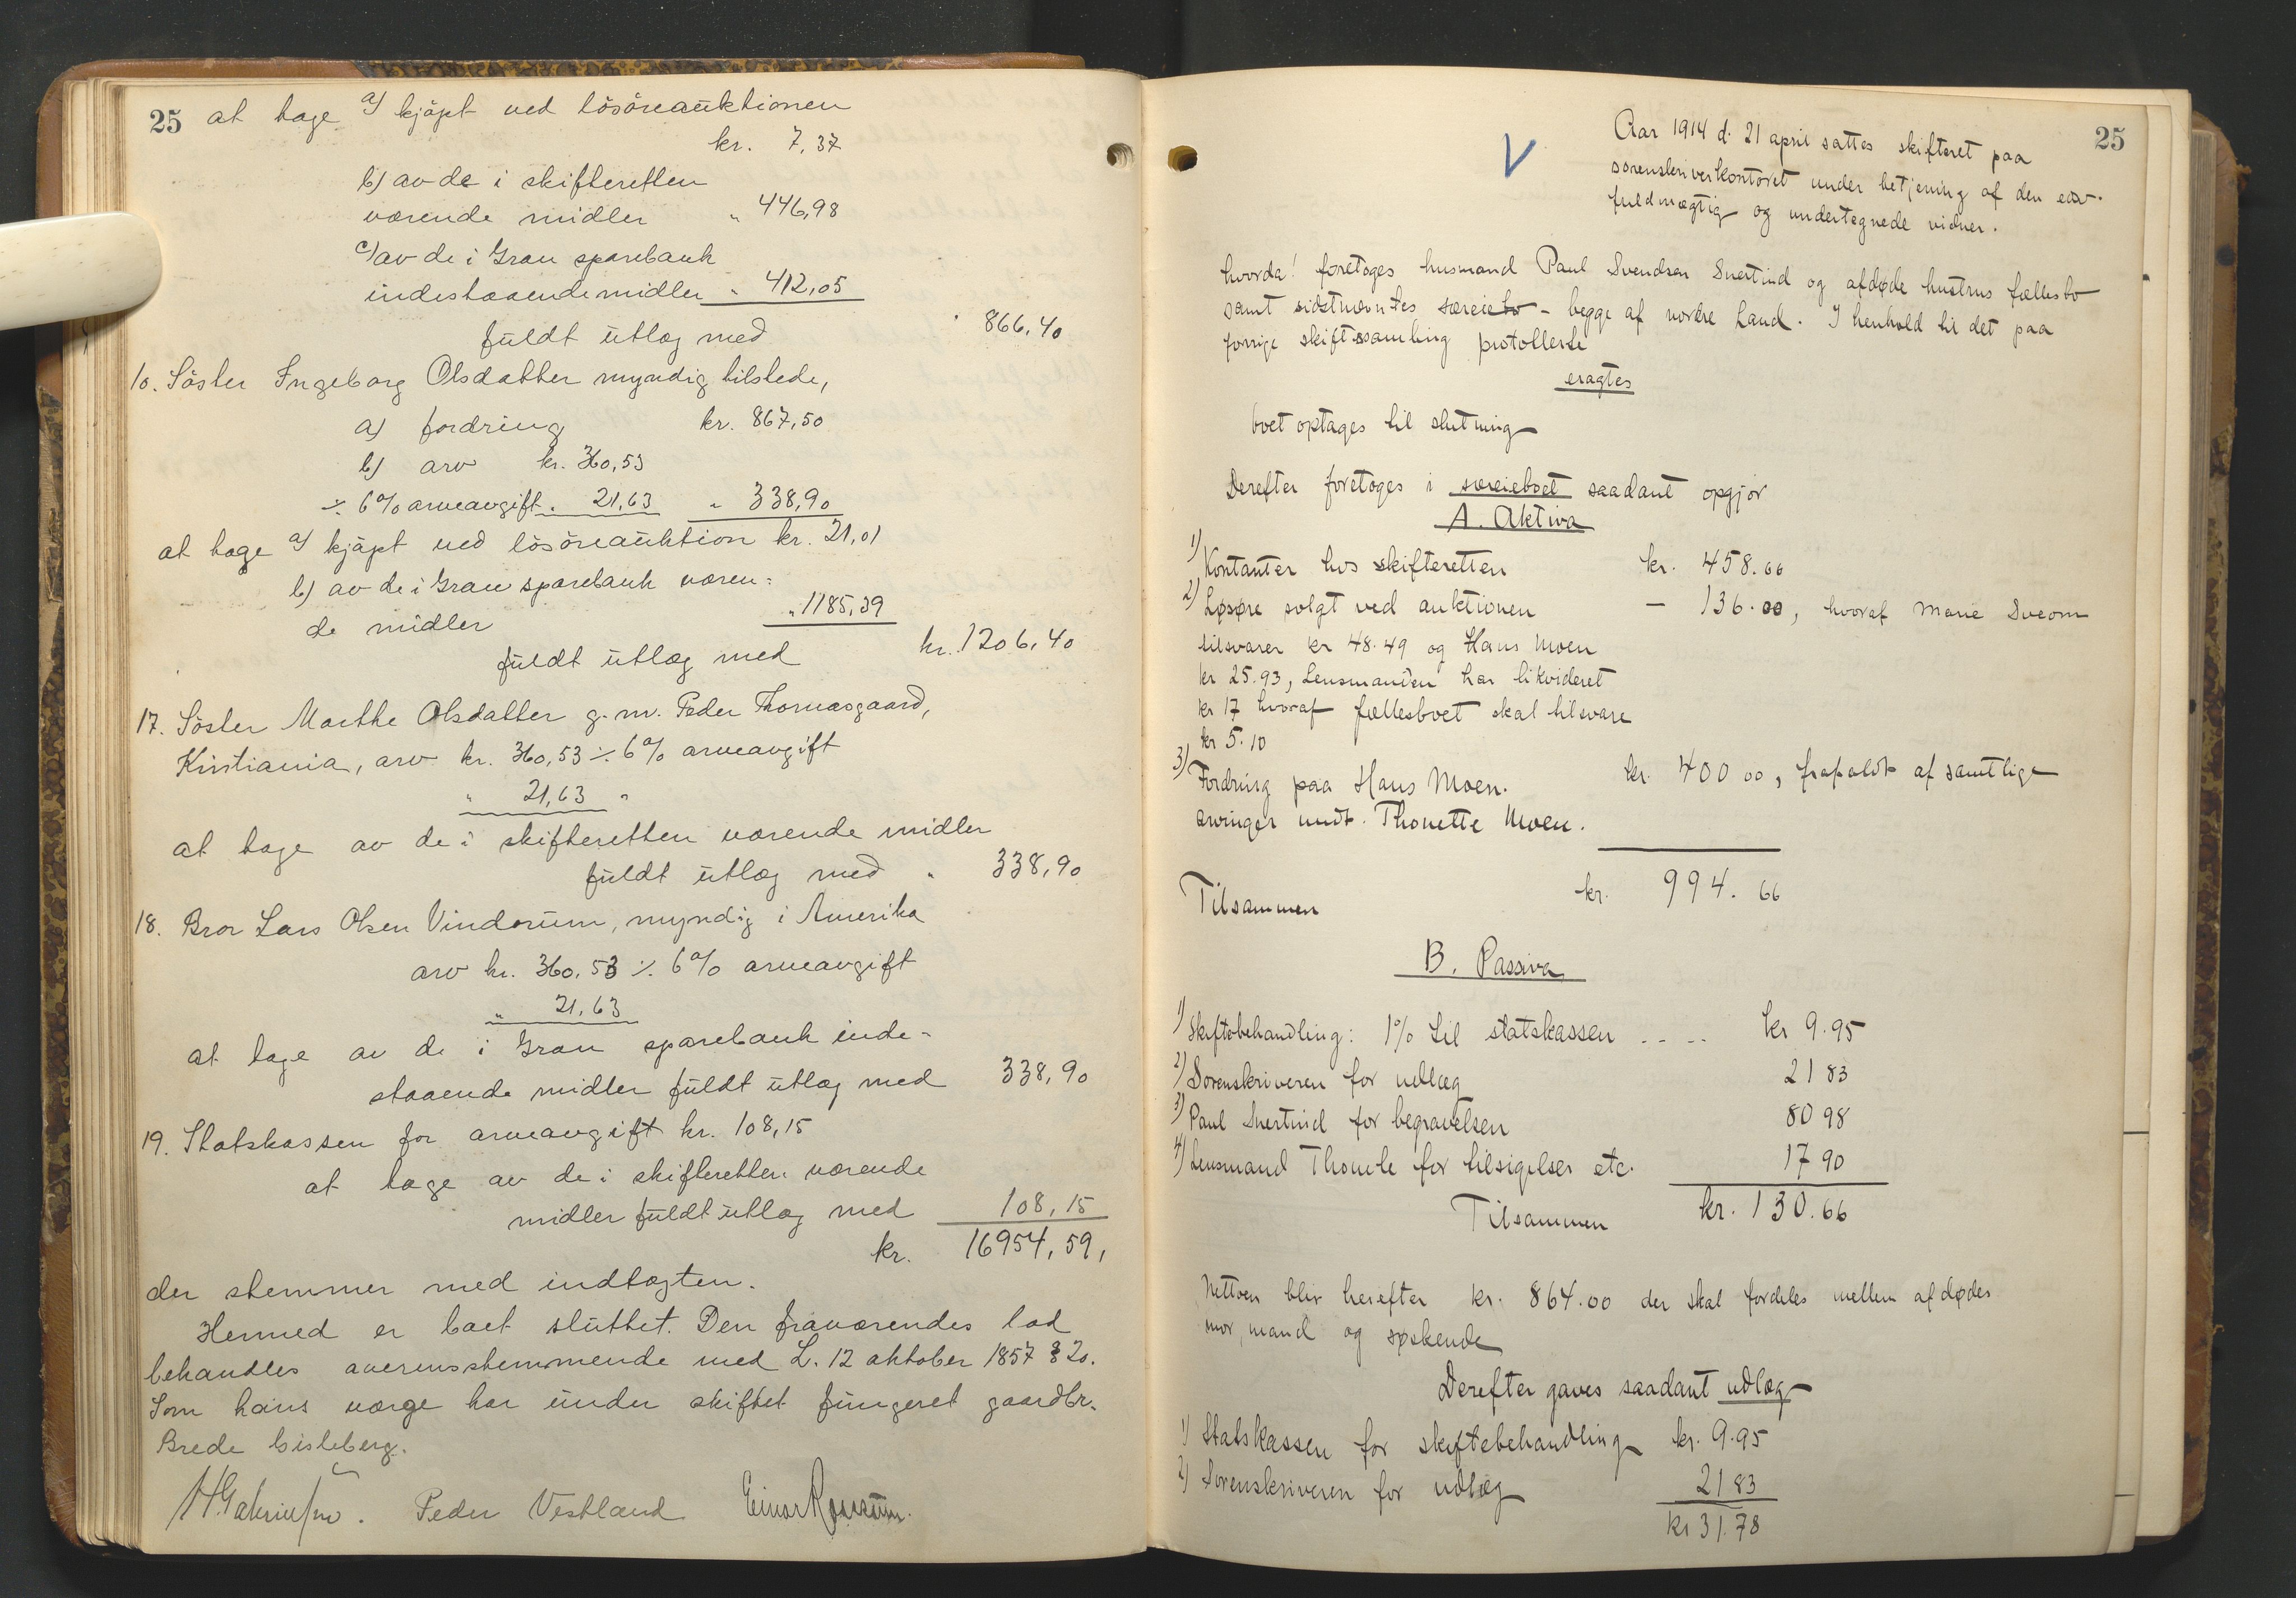 25 at tage a) kjøpt ved løsøreauktionen
kr. 7,37
b) av de i skifteretten
værende midler " 446,98
c) av de i Gran sparebank
indestaaende midler " 412,05
fuldt utlæg med " 866,40
16. Søster Ingeborg Olsdatter myndig tilstede,
a) fordring kr. 867,50
b) arv kr. 360,53
÷ 6% arveavgift " 21,63 " 338,90
at tage a) kjøpt ved løsøreauktion kr. 21,01
b) av de i Gran sparebank væren-
de midler " 1185,39
fuldt utlæg med kr. 1206,40
17. Søster Marthe Olsdatter g. m. Peder Thomasgaard,
Kristiania, arv kr. 360,53 ÷ 6% arveavgift
" 21,63 "
at tage av de i skifteretten værende midler
fuldt utlæg med " 338,90
18. Bror Lars Olsen Vindorum, myndig i Amerika
arv kr. 360,53 ÷ 6% arveavgift
" 21,63
at tage av de i Gran sparebank inde-
staaende midler fuldt utlæg med 338,90
19. Statskassen for arveavgift kr. 108,15
at tage av de i skifteretten værende
midler fuldt utlæg med 108,15
kr. 16954,59,
der stemmer med indtægten.
Hermed er boet sluttet. Den fraværendes lod
behandles overensstemmende med L. 12 oktober 1857 § 20.
Som hans værge har under skiftet fungeret gaardbr.
Brede
Peder Vestland Einar
25
V
Aar 1914 d. 21 april sattes skifteret paa
sorenskriverkontoret under betjening af den edsv.
fuldmægtig og undertegnede vidner.
hvorda! foretoges husmand Paul Svendsen Snertind og afdøde hustrus fællesbo
samt sidstnævntes særeiebo - begge af nordre Land. I henhold til det paa
forrige skiftesamling protollerte
eragtes
boet optages til slutning
Derefter foretoges i særeieboet saadant opgjør
A. Aktiva
1) Kontanter hos skifteretten kr. 458.66
2) Løsøre solgt ved auktionen — 136.00, hvoraf Marie Sveom
tilsvarer kr 48.49 og Hans Moen
kr 25.93, Lensmanden har likvideret
kr 17 hvoraf fællesboet skal tilsvare
kr 5.10
3) Fordring paa Hans Moen. kr. 400 00, frafaldt af samtlige
arvinger undt. Thonette Moen.
Tilsammen kr. 994.66
B. Passiva
1) Skiftebehandling: 1% til statskassen .... kr 9.95
2) Sorenskriveren for udlæg 21 83
3) Paul Snertind for begravelsen 80 98
4) Lensmand Thomle for tilsigelser etc. 17 90
Tilsammen kr. 130.66
Nettoen blir herefter kr. 864.00 der skal fordeles mellem afdødes
mor, mand og søskende
Derefter gaves saadant udlæg
1) Statskassen for skiftebehandling kr. 9.95
2) Sorenskriveren for udlæg 21 83
kr 31.78